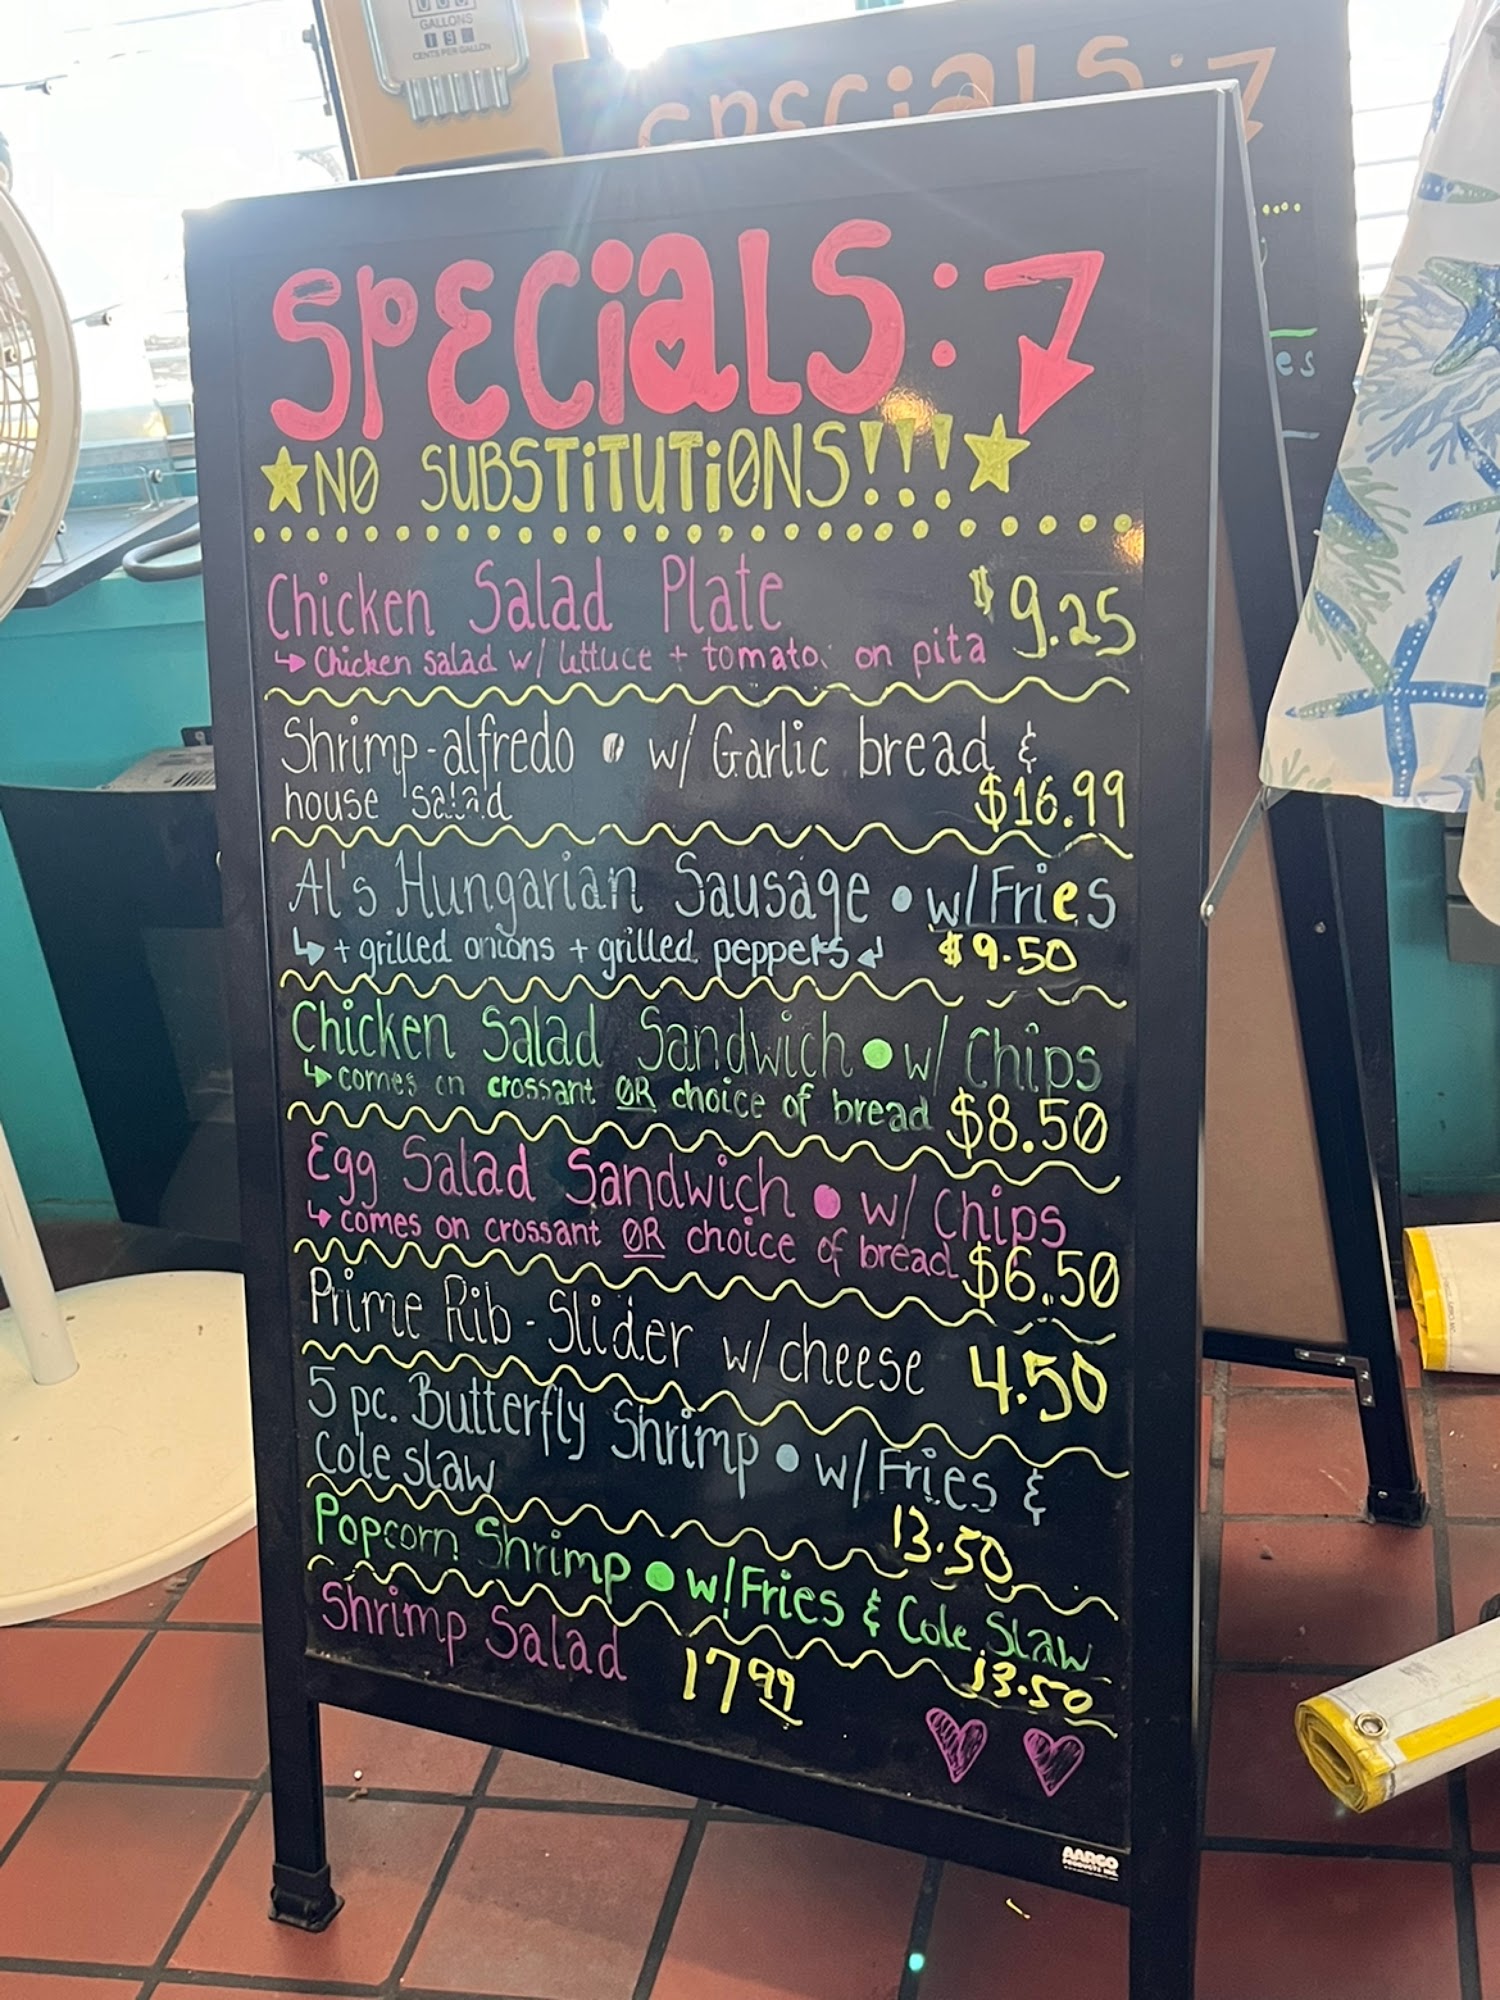 GALLONS
CENTS PER GALLON
SPECiALS:
SPECiALS:
NO SUBSTiTUTiONS!!!
Chicken Salad Plate $9.25
Chicken salad w/ lettuce + tomato on pita
Shrimp-alfredo • w/ Garlic bread &
house salad $16.99
Al's Hungarian Sausage • w/ Fries
+ grilled onions + grilled peppers $9.50
Chicken Salad Sandwich • w/ Chips
comes on crossant OR choice of bread $8.50
Egg Salad Sandwich • w/ Chips
comes on crossant OR choice of bread $6.50
Prime Rib-Slider w/ cheese 4.50
5 pc. Butterfly Shrimp • w/ Fries &
Cole slaw 13.50
Popcorn Shrimp • w/ Fries & Cole Slaw
13.50
Shrimp Salad 17 99
AARCO
PRODUCTS INC.